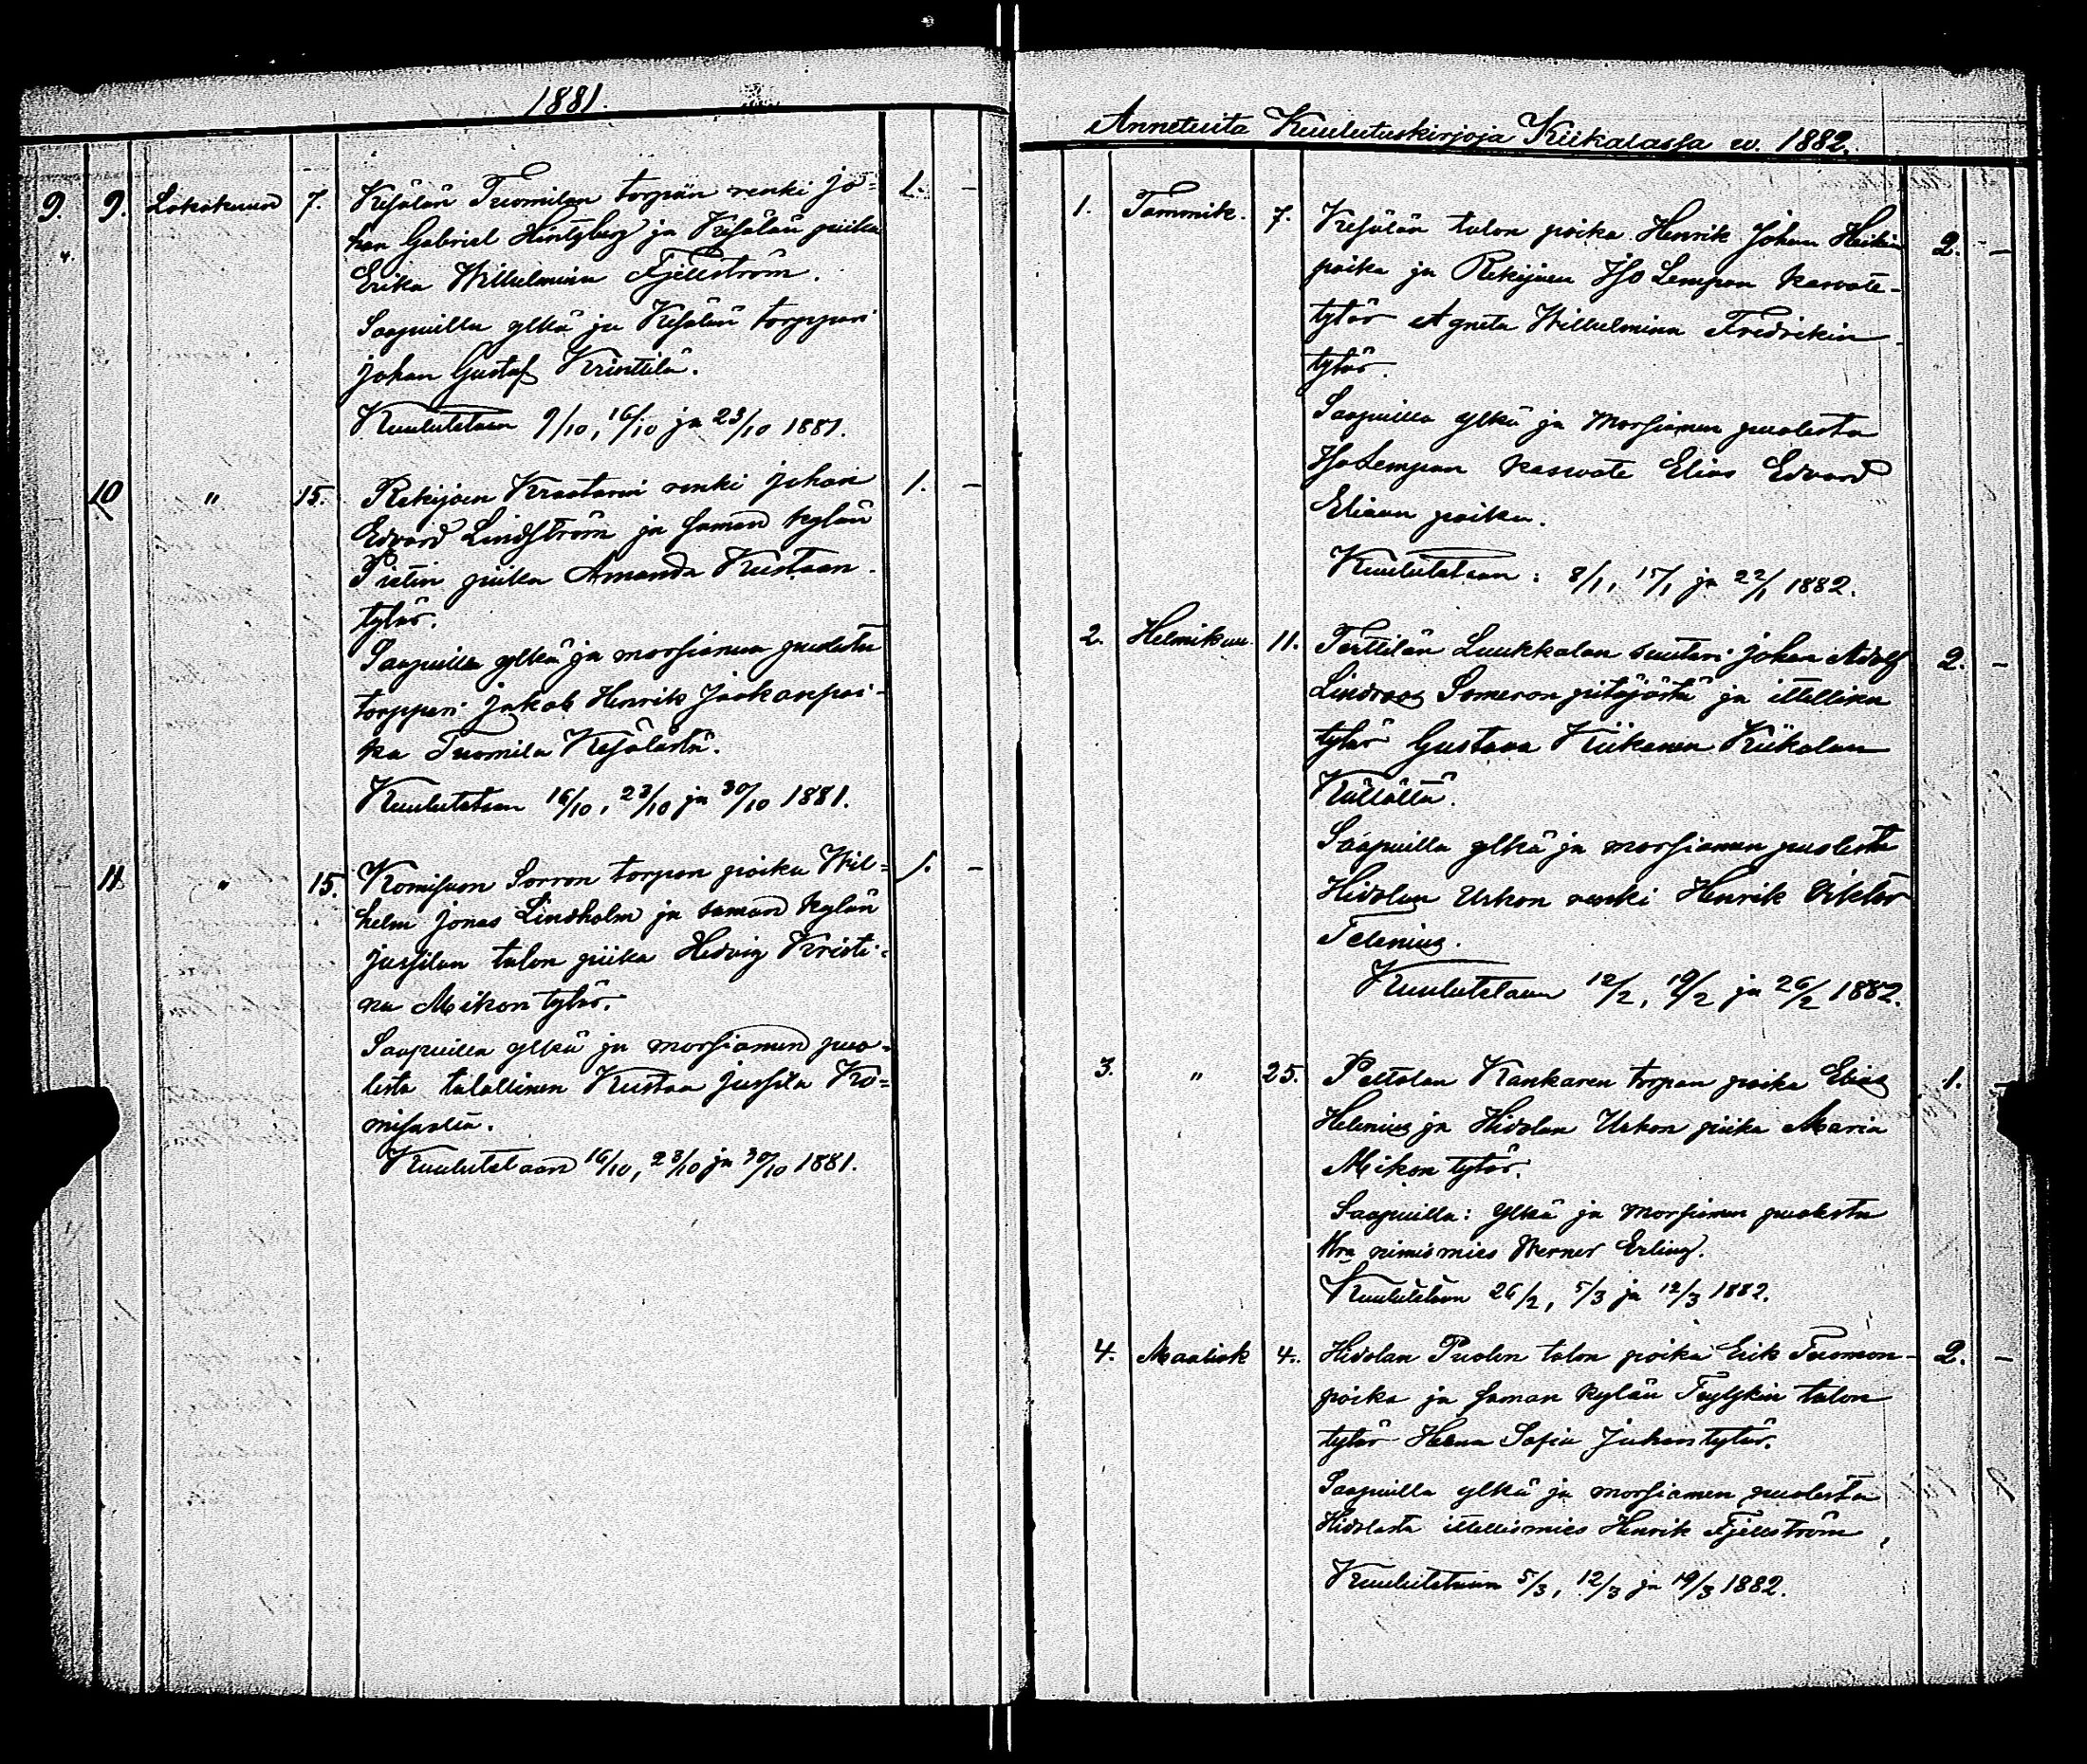 1881.
9. 9. Lokakuun 7. Kesälän Tuomilan torpan renki Jo= 1. -
han Gabriel Hintzberg ja Kesälän piika
Erika Wilhelmina Fjellström.
Saapuilla ylkä ja Kesälän torppari
Johan Gustaf Krinttilä.
Kuulutetaan 9/10, 16/10 ja 23/10 1881.
10 " 15. Rekijoen Kraatarin renki Johan 1. -
Edvard Lindström ja saman kylän
Pietin piika Amanda Kustaan
tytär.
Saapuilla ylkä ja morsiamen puolesta
torppari Jakob Henrik Jaakonpoi-
ka Tuomila Kesälästä.
Kuulutetaan 16/10, 23/10 ja 30/10 1881.
11 " 15. Komisuon Sorron torpan poika Wil= 1. -
helm Jonas Lindholm ja saman kylän
Jussilan talon piika Hedvig Kristi-
na Mikontytär.
Saapuilla ylkä ja morsiamen puo-
lesta talollinen Kustaa Jussila Ko=
misuolta.
Kuulutetaan 16/10, 23/10 ja 30/10 1881.
Annetuita Kuulutuskirjoja Kiikalassa vv. 1882.
1. Tammik. 7. Kesälän talon poika Henrik Johan Heikin 2. -
poika ja Rekijoen Iso Lempan kasvate-
tytär Agneta Wilhelmina Fredrikin
tytär.
Saapuilla ylkä ja morsiamen puolesta
Iso Lempan kasvate Elias Edvard
Eliaan poika.
Kuulutetaan: 8/1, 15/1 ja 22/1 1882.
2. Helmikuu. 11. Terttilän Luukkalan suutari Johan Adolf 2. -
Lindroos Someron pitäjästä ja itellisen
tytär Gustava Kiikanen Kiikalan
Saapuilla ylkä ja morsiamen puolesta
Hidolan Uskon renki Henrik Viktor
Telenius.
Kuulutetaan 12/2, 19/2 ja 26/2 1882.
3. " 25. Peltolan Kankaren torpan poika Elias 1. -
Helenius ja Hidolan Uskon piika Maria
Mikon tytär.
Saapuilla: ylkä ja morsiamen puolesta
Hra nimismies Werner Erling.
Kuulutetaan 26/2, 5/3 ja 12/3 1882.
4. Maalisk 4. Hidolan Puolen talon poika Erik Tuomon- 2. -
poika ja saman kylän talon
tytär Helena Sofia Juhantytär.
Saapuilla ylkä ja morsiamen puolesta
Hidolasta itellismies Henrik Fjellström,
Kuulutetaan 5/3, 12/3 ja 19/3 1882.